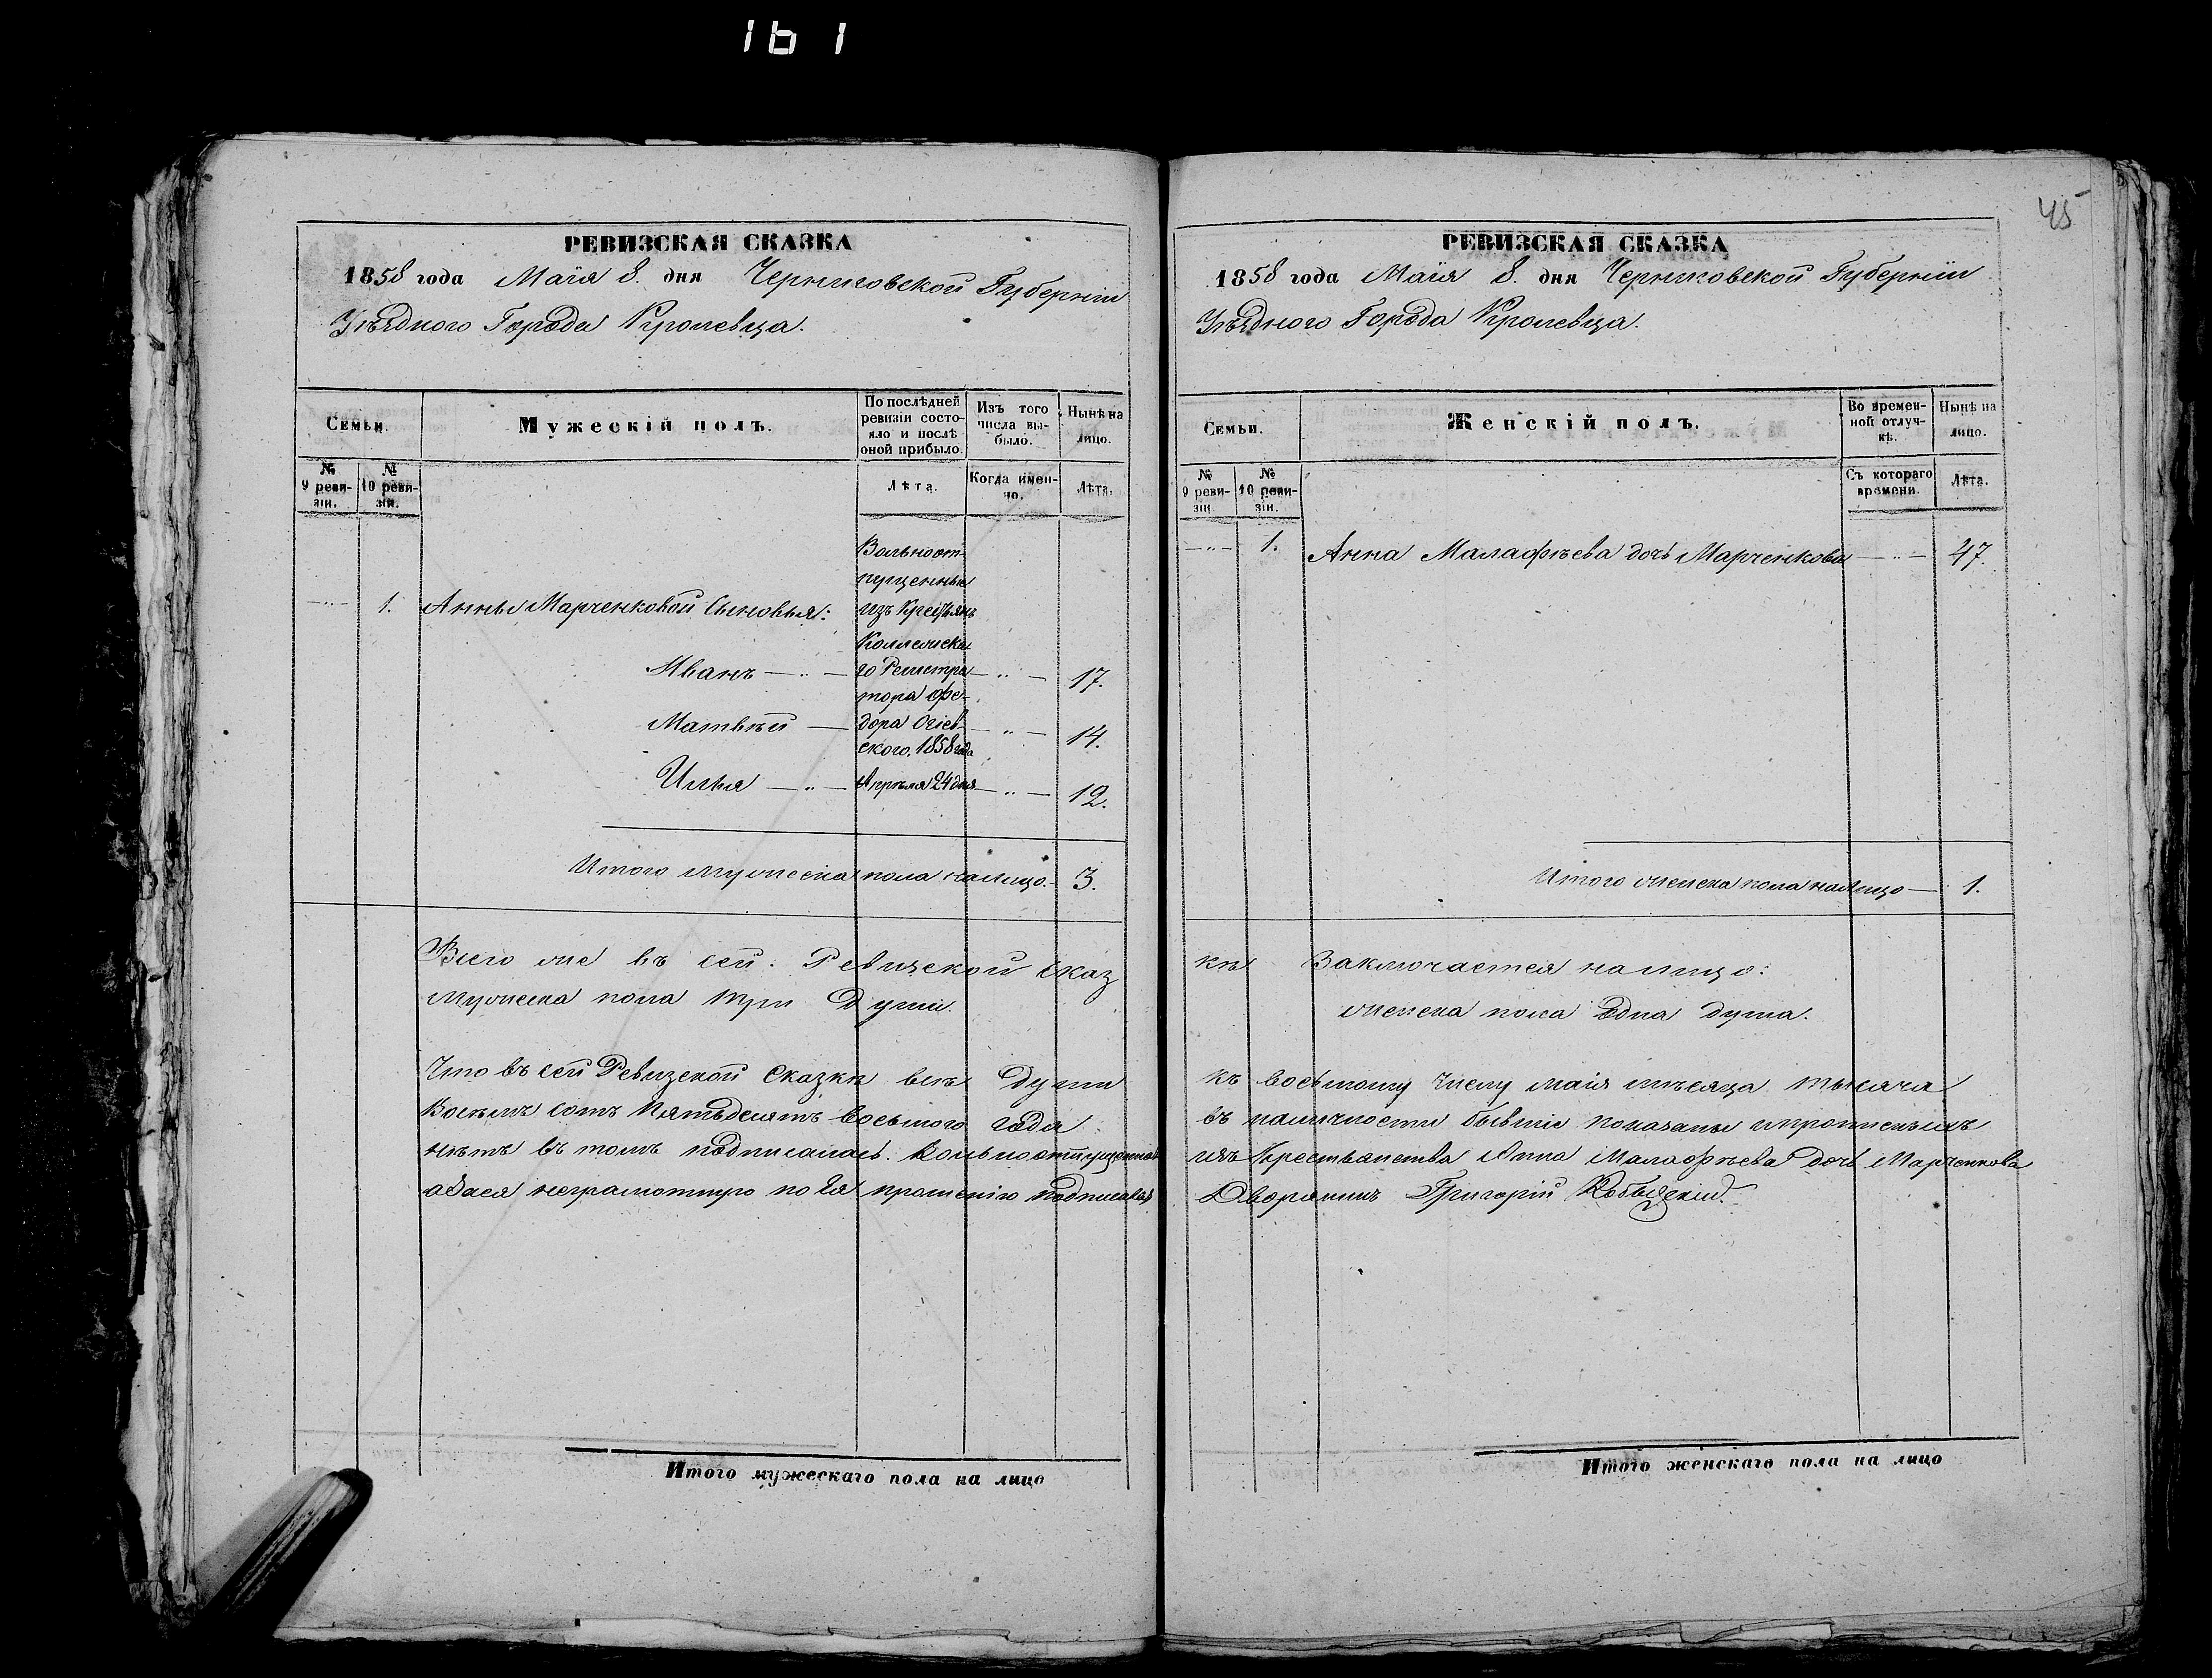 161
45
РЕВИЗСКАЯ СКАЗКА
1858 года Маія 8. дня Черниговской Губерніи
Уѣзднаго Города Кролевца.
Семьи.
Мужескій полъ.
По послѣдней ревизіи состояло и послѣ оной прибыло.
Изъ того числа выбыло.
Нынѣ на лицо.
№ 9 ревизіи.
№ 10 ревизіи.
Лѣта.
Когда именно.
Лѣта.
Вольноот-
пущенные
—"— 1. Анны Марченковой Сыновья: изъ Крестьянъ
Коллежска
Иванъ —"— го Регистра —"— 17.
тора Фе-
Матвѣй — дора Огіев- —"— 14.
ского, 1858 года
Илья —"— Апрѣля 24 дня —"— 12.
Итого мужеска пола налицо. 3.
Всего же въ сей Ревизской Сказ
мужеска пола три души.
Что въ сей Ревизской Сказкѣ всѣ души
Восемь сотъ Пятьдесятъ восьмого года
нѣтъ въ томъ подписалась. Вольноотпущенная
а за нея неграмотную по Ея прошенію подписался
Итого мужескаго пола на лицо
РЕВИЗСКАЯ СКАЗКА
1858 года Маія 8. дня Черниговской Губерніи
Уѣзднаго Города Кролевца.
Семьи.
Женскій полъ.
Во временной отлучкѣ.
Нынѣ на лицо.
№ 9 ревизіи
№ 10 ревизіи.
Съ котораго времени.
Лѣта.
—"— 1. Анна Малафѣева дочь Марченкова —"— 47.
Итого женска пола налицо — 1.
кѣ Заключается налицо:
женска пола Одна душа.
къ восьмому Числу маія мѣсяца тысяча
въ наличности бывшіе показаны и прописныхъ
изъ Крестьянства Анна Малафѣева дочь Марченкова
Дворянинъ Григорій
Итого женскаго пола на лицо